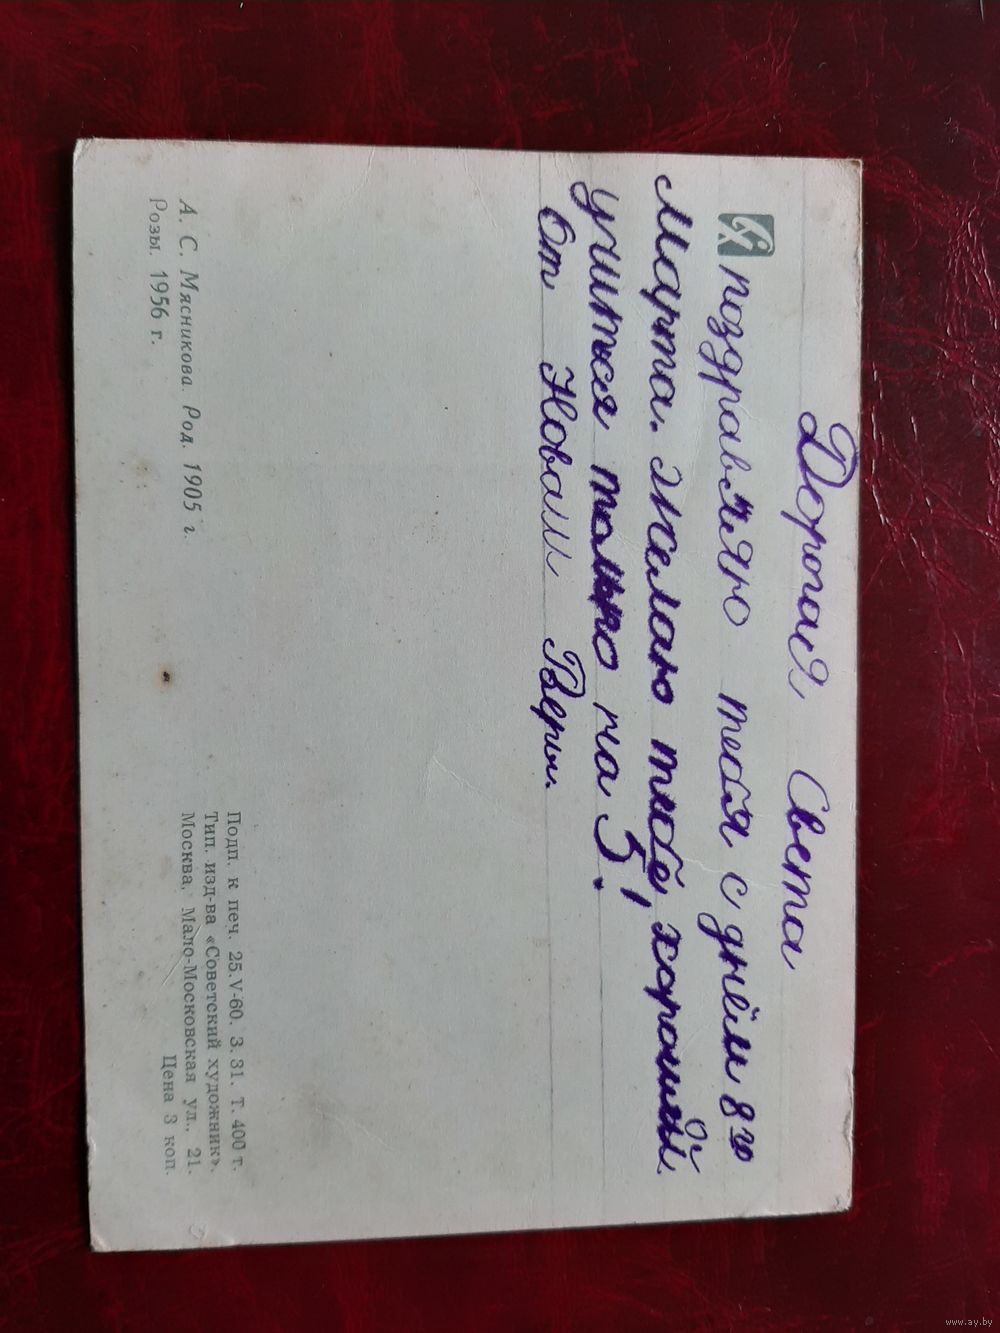 Дорогая Света
поздравляю тебя с днём 8го
Марта. Желаю тебе, хорошо
учиться только на 5!
От Новаш Веры.
А. С. Мясникова. Род. 1905 г.
Розы. 1956 г.
Подп. к печ. 25.V-60. З. 31. Т. 400 т.
Тип. изд-ва «Советский художник».
Москва, Мало-Московская ул., 21.
Цена 3 коп.
www.ay.by